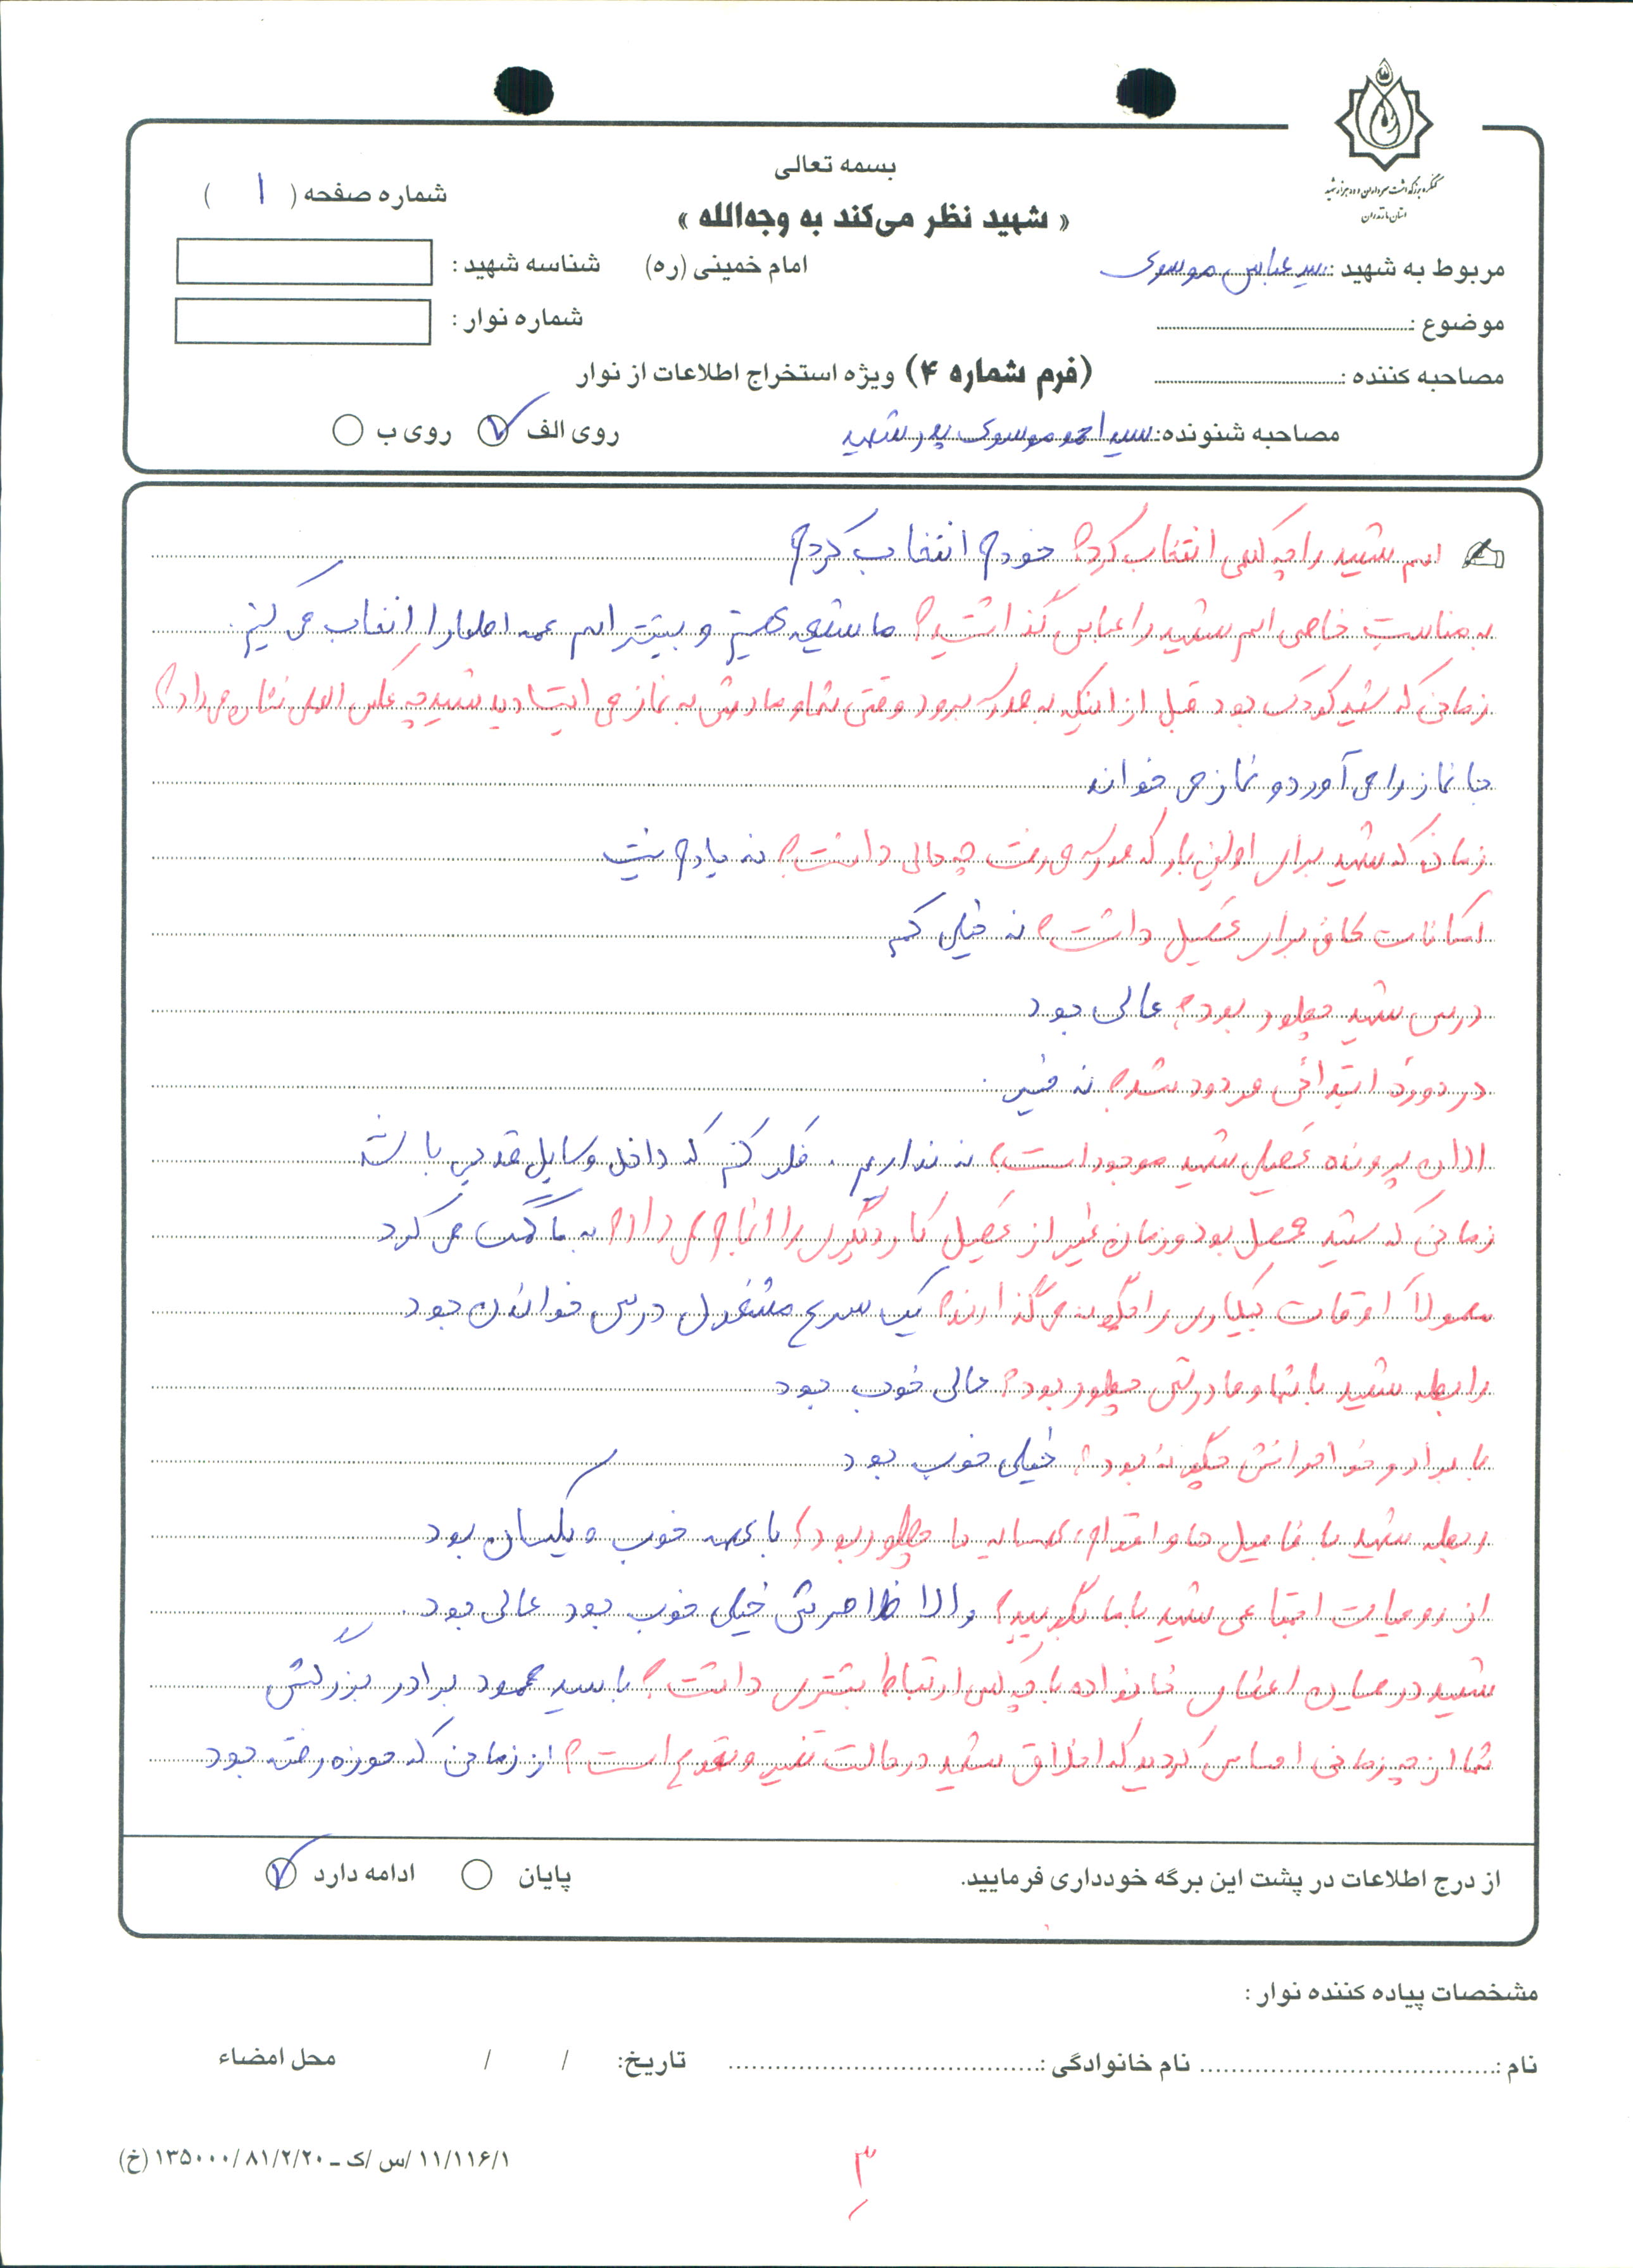 کنگره بزرگداشت سرداران و ده هزار شهید
استان مازندران
بسمه تعالی
شماره صفحه ( ۱ )
« شهید نظر می‌کند به وجه‌الله »
مربوط به شهید : سید عباس موسوی
امام خمینی (ره)
شناسه شهید :
موضوع :
شماره نوار :
مصاحبه کننده :
(فرم شماره ۴) ویژه استخراج اطلاعات از نوار
مصاحبه شنونده: سید احمد موسوی پدر شهید
روی الف
روی ب
اسم شهید را چه کسی انتخاب کرد؟ خودم انتخاب کردم
به مناسبت خاصی اسم شهید را عباس گذاشتید؟ ما شیعه هستیم و بیشتر اسم عمه اطهار را انتخاب می کنیم.
زمانی که شهید کودک بود قبل از اینکه به مدرسه برود وقتی شما و مادرش به نماز می ایستادید شهید چه عکس العملی نشان می داد؟
جا نماز را می آورد و نماز می خواند
زمانی که شهید برای اولین بار که مدرسه می رفت چه حالی داشت؟ نه یادم نیست
امکانات کافی برای تحصیل داشت؟ نه خیلی کم
درس شهید چطور بود؟ عالی بود
در دورهٔ ابتدائی مردود شد؟ نه خیر.
الان پرونده تحصیلی شهید موجود است؟ نه نداریم. فکر کنم که داخل وسایل قدیمی باشد
زمانی که شهید محصل بود در زمان غیر از تحصیل کار دیگری را انجام می داد؟ به ما کمک می کرد
معمولاً اوقات بیکاری را چگونه می گذارند؟ یک سره مشغول درس خواندن بود
رابطه شهید با شما و مادرش چطور بود؟ عالی خوب بود
با برادر و خواهرانش چگونه بود؟ خیلی خوب بود
رابطه شهید با فامیل ها و اقوام، همسایه ها چطور بود؟ با همه خوب و یکسان بود
از روحیات اجتماعی شهید با ما بگوئید؟ والا ظاهرش خیلی خوب بود عالی بود.
شهید در میان اعضای خانواده با چه کسی ارتباط بیشتری داشت؟ با سید محمود برادر بزرگش
شما از چه زمانی احساس کردید که اخلاق شهید در حالت تغییر و تقدم است؟ از زمانی که حوزه رفته بود
از درج اطلاعات در پشت این برگه خودداری فرمایید.
پایان
ادامه دارد
مشخصات پیاده کننده نوار :
نام :
نام خانوادگی :
تاریخ: / /
محل امضاء
۱۱/۱۱۶/۱ /س /ک ـ ۸۱/۲/۲۰ /۱۳۵۰۰۰ (خ)
۳